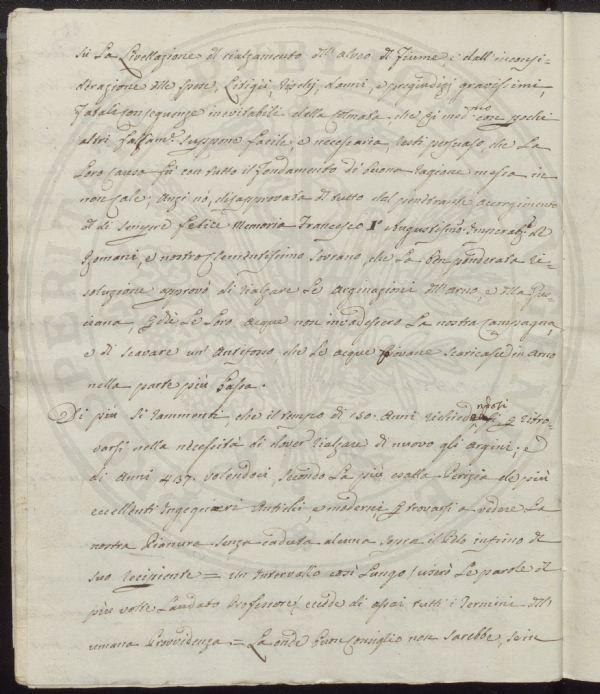 su La Livellazione di rialzamento dell'alveo di Fiume e dall'inconsi-
derazione delle spese, Litigii, rischj, danni, e pregiudizj gravissimi,
fatali conseguenze inevitabili della che con pochi
altri falsam.e suppone facile, e necessaria, resti persuaso che La
Loro causa fù con tutto il fondamento di buona ragione messa in
non cale; Anzi nò, disapprovata di tutto dal ponderante accorgimento
di sempre felice Memoria Francesco I.o Augustissimo Imperat.re de
Romani, e nostro Clementissimo Sovrano, che La ben ponderata ri-
soluzione approvò di rialzare Le Arginazioni dell'Arno, e della Gus-
ciana, Le Loro Acque non invadessero La nostra Campagna,
e di scavare un' Antifosso che Le acque Piovane scaricasse in Arno
nella parte più bassa.
Di più si rammenti, che il tempo di 150. Anni ritro-
varsi nella necessità di dover rialzare di nuovo gli Argini; e
di Anni 437. volendoci, secondo La più esatta Perizia de più
eccellenti Ingegneri Antichi, e moderni, p trovarsi a vedere La
nostra Pianura senza caduta alcuna sopra il Pelo infimo di
suo recipiente = un Intervallo così Lungo (userò Le parole del
più volte Laudato Professore) eccede di assai tutti i Termini dell'
umana Provvidenza = La onde buon Consiglio non sarebbe, se in